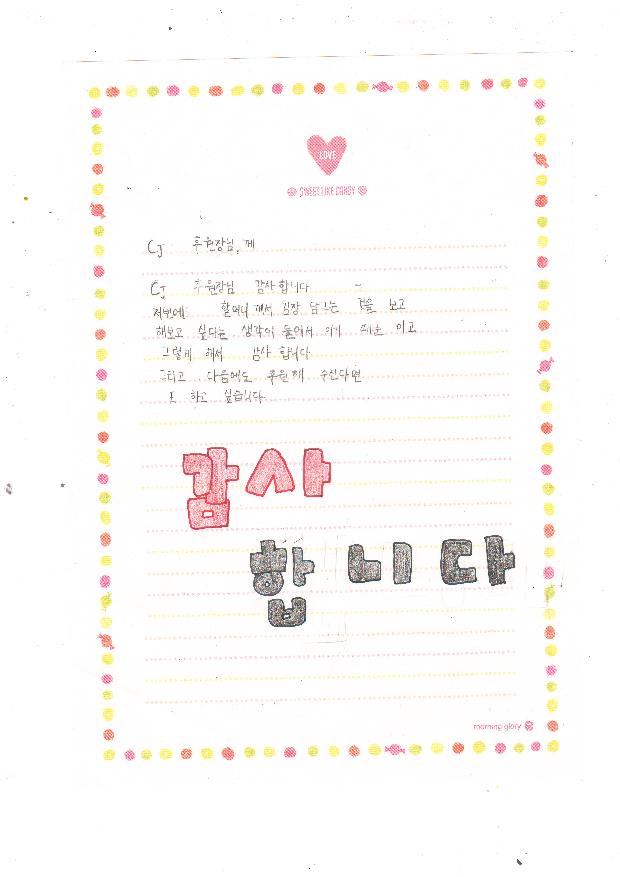 LOVE
SWEET LIKE CANDY
CJ 후원장님, 께
CJ 후원장님 감사 합니다
저번에 할머니 께서 김장 담그는 것을 보고
해보고 싶다는 생각이 들어서
그렇게 해서 감사 합니다
그리고 다음에도 후원해 주신다면
또 하고 싶습니다
감사
합니다
morning glory